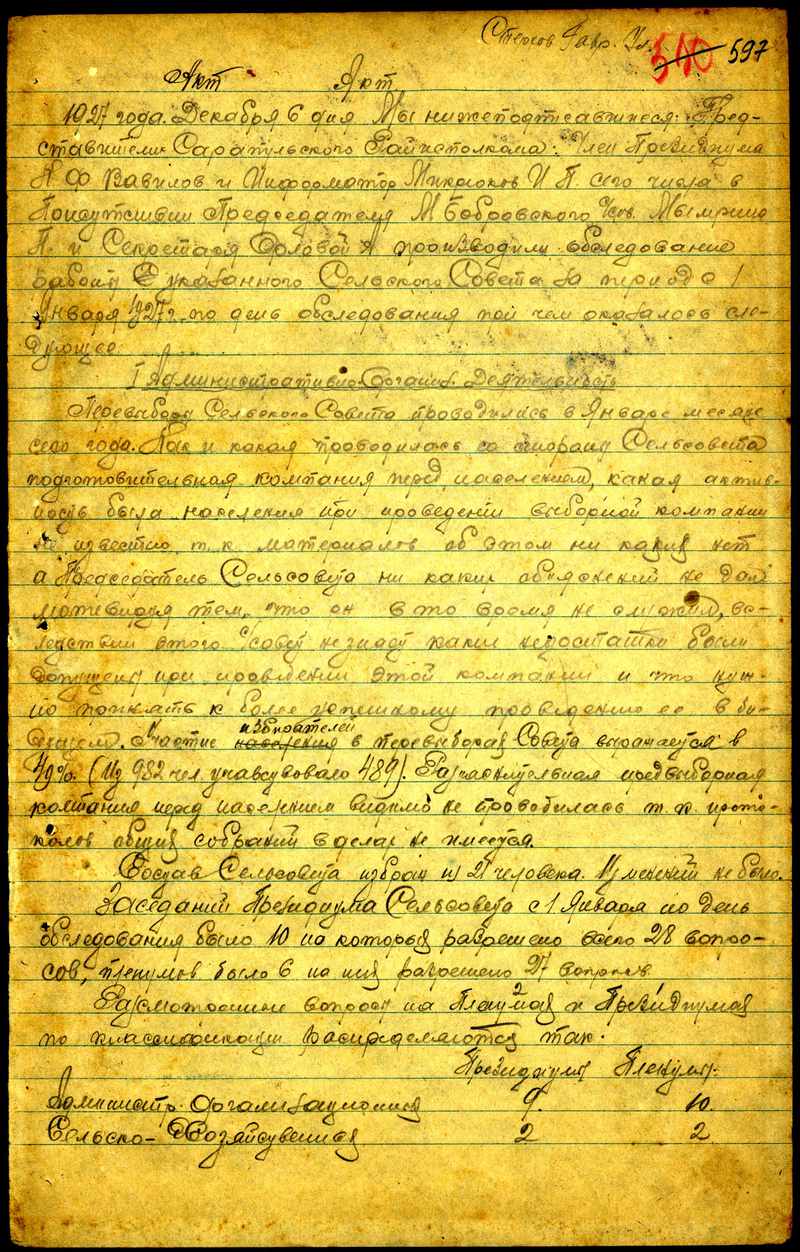 Стехов Гавр. Ул.
510 597
Акт Акт
1927 года. Декабря 6 дня Мы нижеподписавшиеся: Пред-
ставители Сарапульского Райисполкома: Член Президиума
А Ф Вавилов и Информатор И П. сего числа в
Присутствии Председателя М Бобровского Мымрина
П. и Секретаря Орловой А производили обследование
работы указанного Сельского Совета за период с 1
Января 1927 г. по день обследования при чем оказалось сле-
дующее
I Административно-Организ. Деятельность
Перевыборы Сельского Совета проводились в Январе месяце
сего года. Как и какая проводилась со стороны Сельсовета
подготовительная компания перед населением, какая актив-
ность была населения при проведении выборной компании
не известно, т.к. материалов об этом ни каких нет
а Председатель Сельсовета ни каких объяснений не дал
мотивируя тем, что он в то время не служил, вс-
ледствии этого с/совет не знает какие недостатки были
допущены при проведении этой компании и что нуж-
но принять к более успешному проведению ее в бу-
дущем. Участие населения избирателей в перевыборах Совета выражается в
49%. (Из 982 чел. учавсвовало 489). Раз'яснительная предвыборная
компания перед населением видимо не проводилась т.к. прото-
колов общих собраний в делах не имеется.
Состав Сельсовета избран из 21 человека. Изменений не было.
Заседаний Президиума Сельсовета с 1 Января по день
обследования было 10 на которых разрешено всего 28 вопро-
сов, пленумов было 6 на них разрешено 27 вопросов
Рассмотренные вопросы на Пленумах и Президиумах
по классификации распределяются так:
Президиумы Пленумы.
Администр. Организационных 9. 10.
Сельско-Хозяйсвенных 2 2